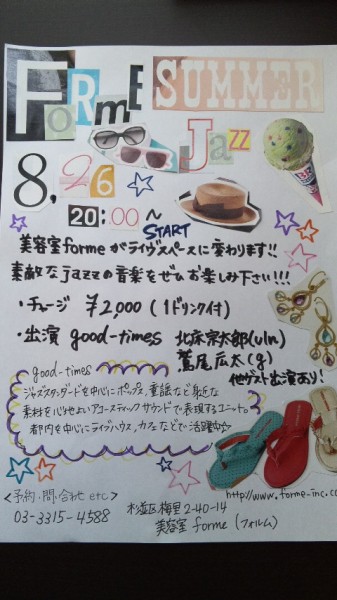 Forme SUMMER
Jazz
8,26
BR
20:00~
START
美容室formeがライヴスペースに変わります!!
素敵なjazzの音楽をぜひお楽しみ下さい!!!
・チャージ ¥2,000(1ドリンク付)
・出演 good-times 北床宗太郎(vln)
鷲尾広太(g)
他ゲスト出演あり!
good-times
ジャズスタンダードを中心にポップス、童謡など身近な
素材を心地よいアコースティックサウンドで表現するユニット。
都内を中心にライヴハウス、カフェなどで活躍中☆
<予約・問い合わせ etc>
http://www.forme-inc.co
03-3315-4588
杉並区梅里2-40-14
美容室 forme (フォルム)